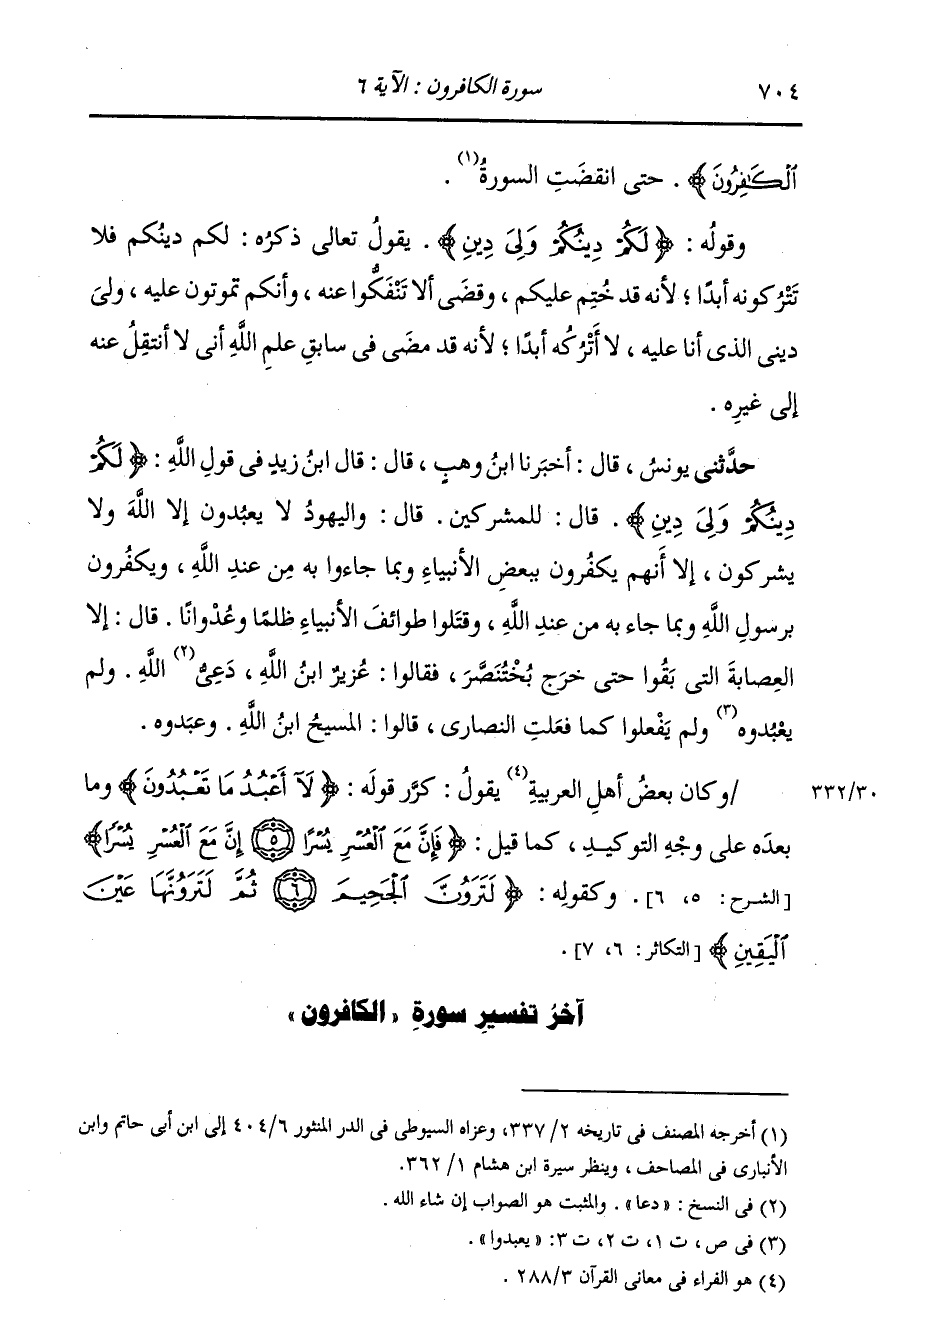 ٧٠٤ سورة الكافرون : الآية ٦
ٱلْكَٰفِرُونَ ﴾ . حتى انقضَتِ السورةُ(١) .
وقولُه : ﴿ لَكُمْ دِينُكُمْ وَلِىَ دِينِ ﴾ . يقولُ تعالى ذكرُه : لكم دينُكم فلا
تَتْرُكونه أبدًا ؛ لأنه قد خُتِم عليكم ، وقضَى ألا تَنْفَكُّوا عنه ، وأنكم تموتون عليه ، ولىَ
دينى الذى أنا عليه ، لا أَتْرُكُه أبدًا ؛ لأنه قد مضَى فى سابقِ علمِ اللَّهِ أنى لا أنتقِلُ عنه
إلى غيرِه .
حدَّثنى يونسُ ، قال : أخبَرنا ابنُ وهبٍ ، قال : قال ابنُ زيدٍ فى قولِ اللَّهِ : ﴿ لَكُمْ
دِينُكُمْ وَلِىَ دِينِ ﴾ . قال : للمشركين . قال : واليهودُ لا يعبُدون إلا اللَّهَ ولا
يشركون ، إلا أَنهم يكفُرون ببعضِ الأنبياءِ وبما جاءوا به مِن عندِ اللَّهِ ، ويكفُرون
برسولِ اللَّهِ وبما جاء به من عندِ اللَّهِ ، وقتَلوا طوائفَ الأنبياءِ ظلمًا وعُدْوانًا . قال : إلا
العِصابةَ التى بَقُوا حتى خرَج بُخْتُنَصَّرَ ، فقالوا : عُزيرٌ ابنُ اللَّهِ ، دَعِىُّ(٢) اللَّهِ . ولم
يعْبُدوه(٣) ولم يَفْعلوا كما فعَلتِ النصارى ، قالوا : المسيحُ ابنُ اللَّهِ . وعبَدوه .
/وكان بعضُ أهلِ العربيةِ(٤) يقولُ : كرَّر قولَه : ﴿ لَآ أَعْبُدُ مَا تَعْبُدُونَ ﴾ وما ٣٣٢/٣٠
بعدَه على وجْهِ التوكيدِ ، كما قيل : ﴿ فَإِنَّ مَعَ ٱلْعُسْرِ يُسْرًا ٥ إِنَّ مَعَ ٱلْعُسْرِ يُسْرًا ﴾
[الشرح: ٥، ٦] . وكقولِه : ﴿ لَتَرَوُنَّ ٱلْجَحِيمَ ٦ ثُمَّ لَتَرَوُنَّهَا عَيْنَ
ٱلْيَقِينِ ﴾ [التكاثر: ٦، ٧] .
آخرُ تفسيرِ سورةِ « الكافرون »
(١) أخرجه المصنف فى تاريخه ٢/ ٣٣٧، وعزاه السيوطى فى الدر المنثور ٤٠٤/٦ إلى ابن أبى حاتم وابن
الأنبارى فى المصاحف ، وينظر سيرة ابن هشام ١/ ٣٦٢.
(٢) فى النسخ : «دعا» . والمثبت هو الصواب إن شاء الله .
(٣) فى ص، ت ١، ت ٢، ت ٣: «يعبدوا» .
(٤) هو الفراء فى معانى القرآن ٢٨٨/٣ .